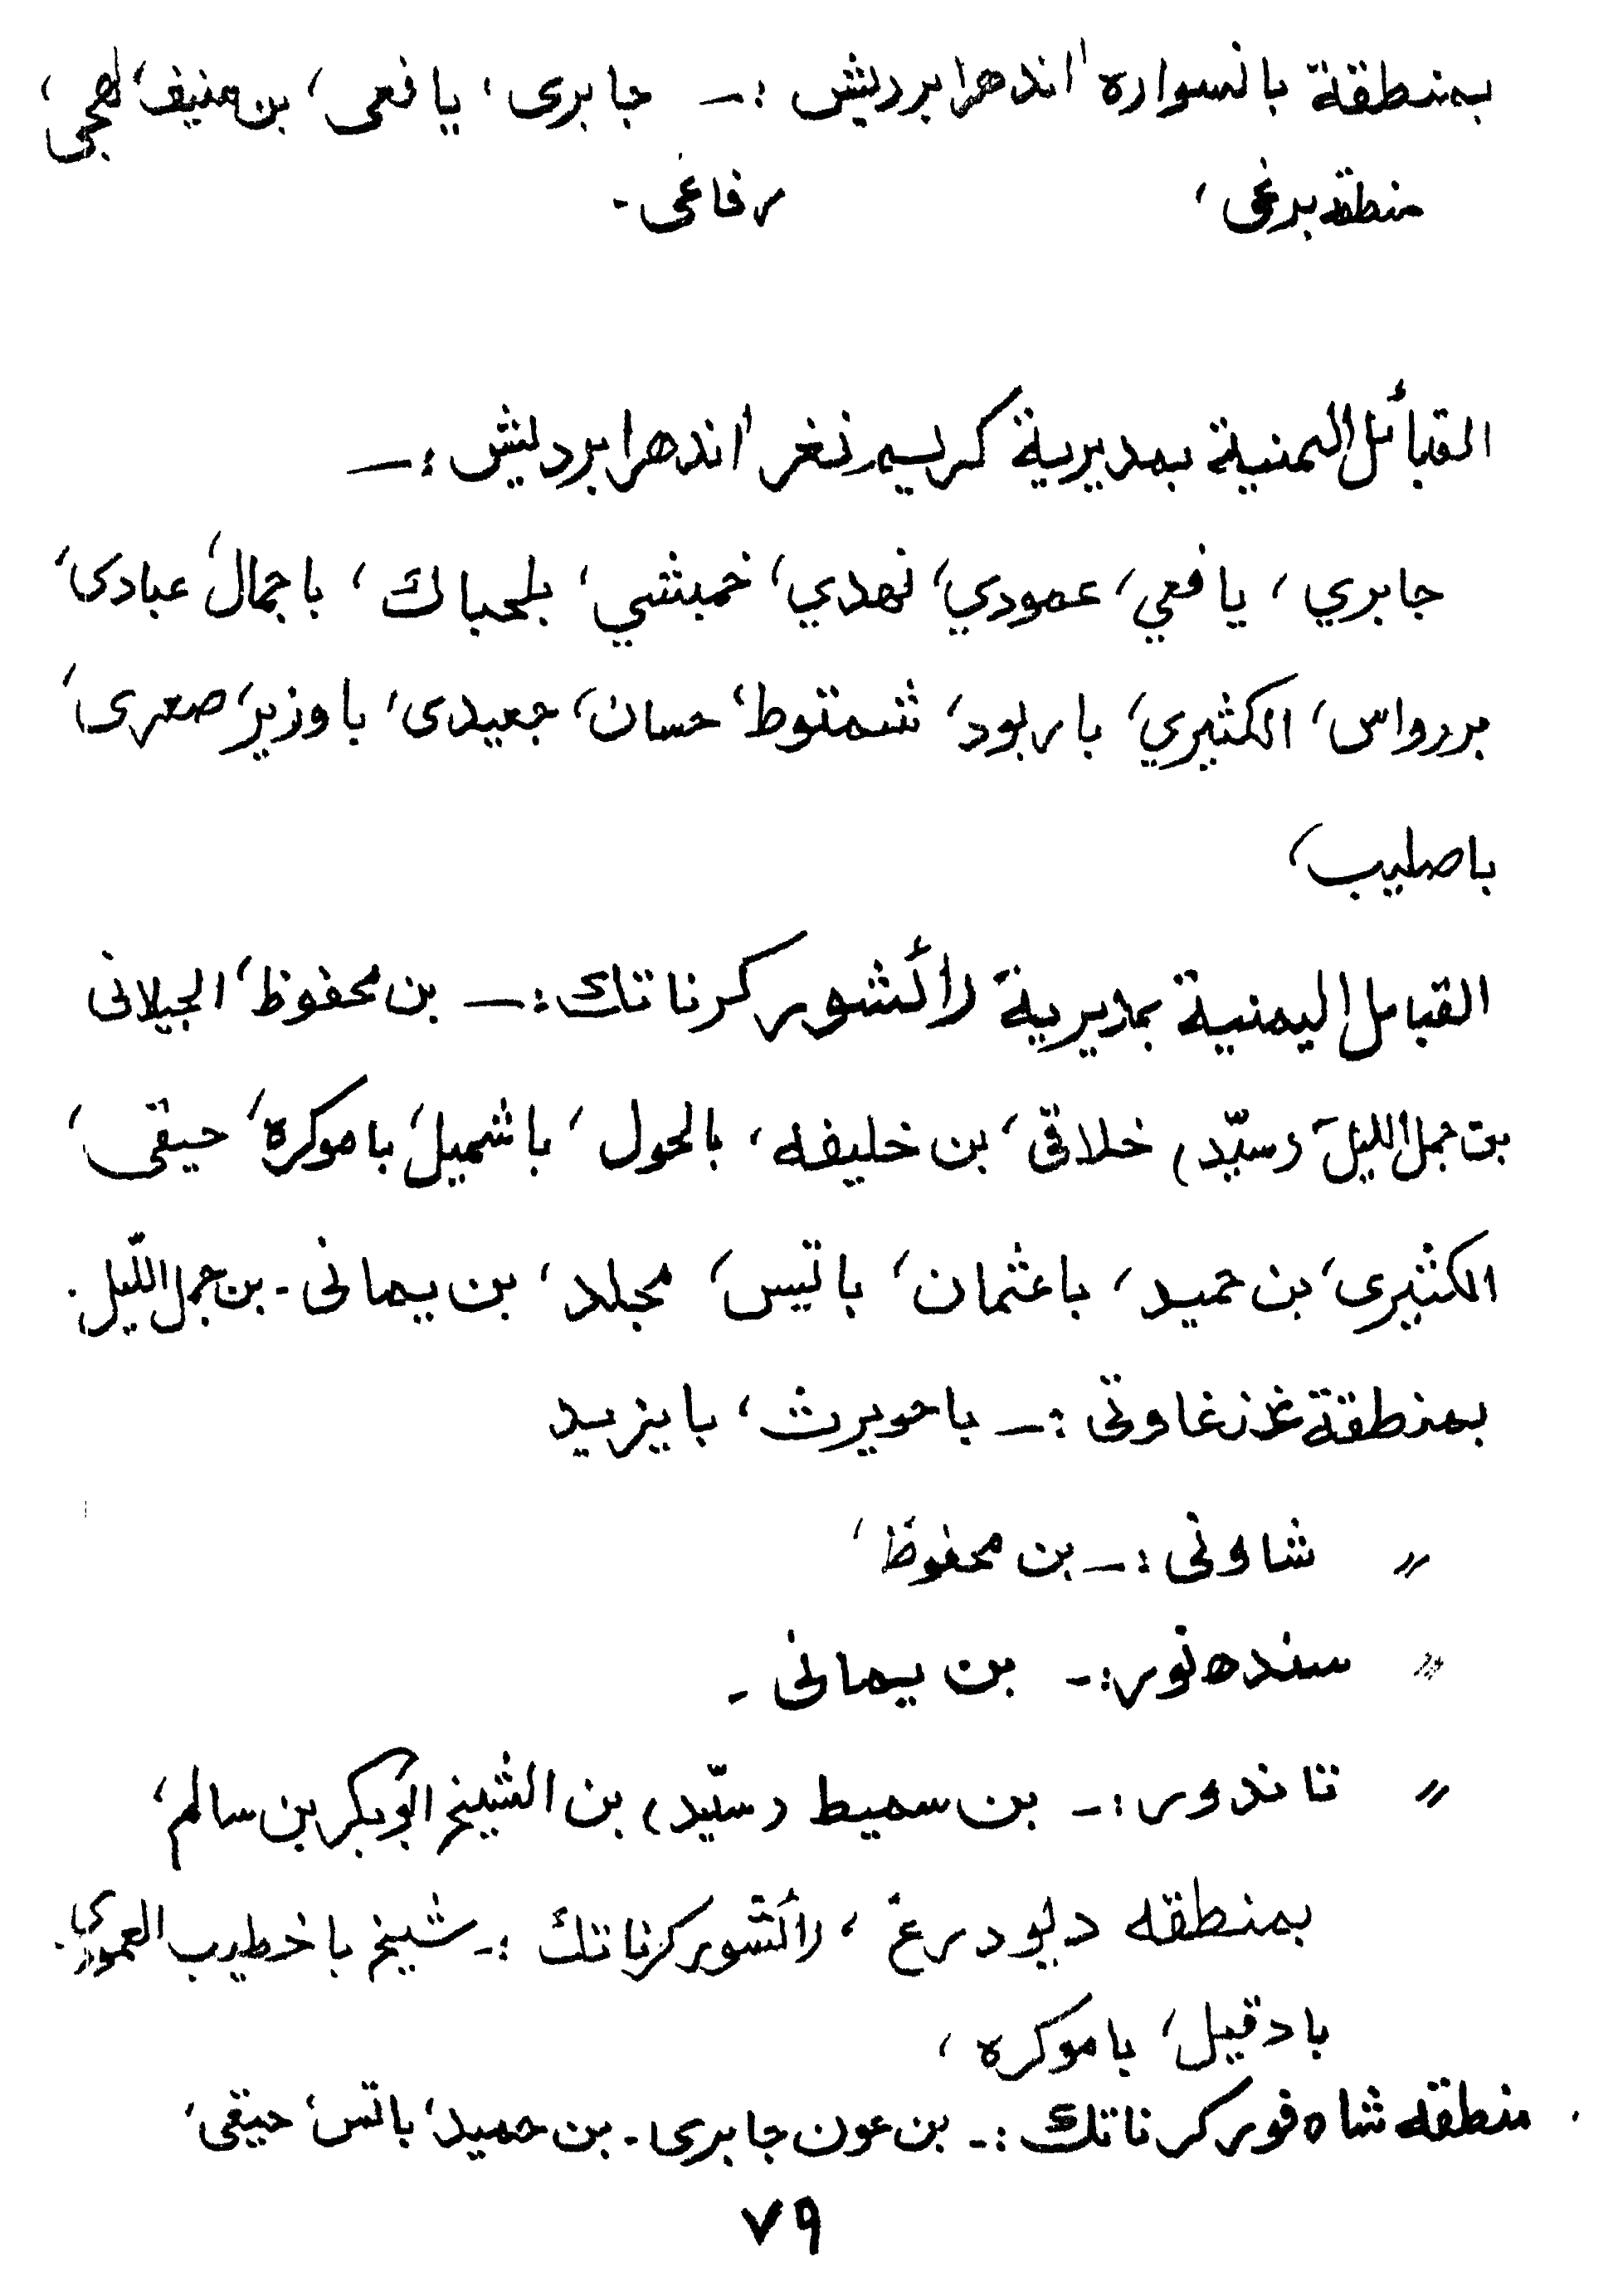 بمنطقة بانسواره اندهرا برديش :ـ جابرى، يافعى، بن منيف، لهجى،
منطقه برغى، رفاعى ـ
القبائل اليمنية بمديرية كريم نغر اندهرا برديش :ـ
جابري، يافعي، عمودي، نهدي، خمبشي، بلحباك، باجمال، عبادى،
بررواس، الكثيري، باربود، شمتوط، حسان، جعيدى، باوزير، صعرى،
باصليب،
القبائل اليمنية بمديرية رائشور كرناتك :ـ بن محفوظ، الجيلانى
بن جمل الليل (سيّد) خلاقى، بن خليفه، بالحول، باشميل، باموكره، حيقى،
الكثيرى، بن حميد، باعثمان، باتيس، مجلد، بن يمانى ـ بن جمل اللّيل.
بمنطقة غنغاوتى :ـ باحويرث، بايزيد
〃 شاونى :ـ بن محفوظ،
〃 سندهنور :ـ بن يمانى ـ
〃 تاندور :ـ بن سميط (سيّد) بن الشيخ ابوبكر بن سالم،
بمنطقه ديودرغ، رائشور كرناتك :ـ شيخ باخطيب العمودي.
بادقيل، باموكره،
منطقه شاه فور كرناتك :ـ بن عون جابرى ـ بن حميد، باتس، حيقى،
٧٩